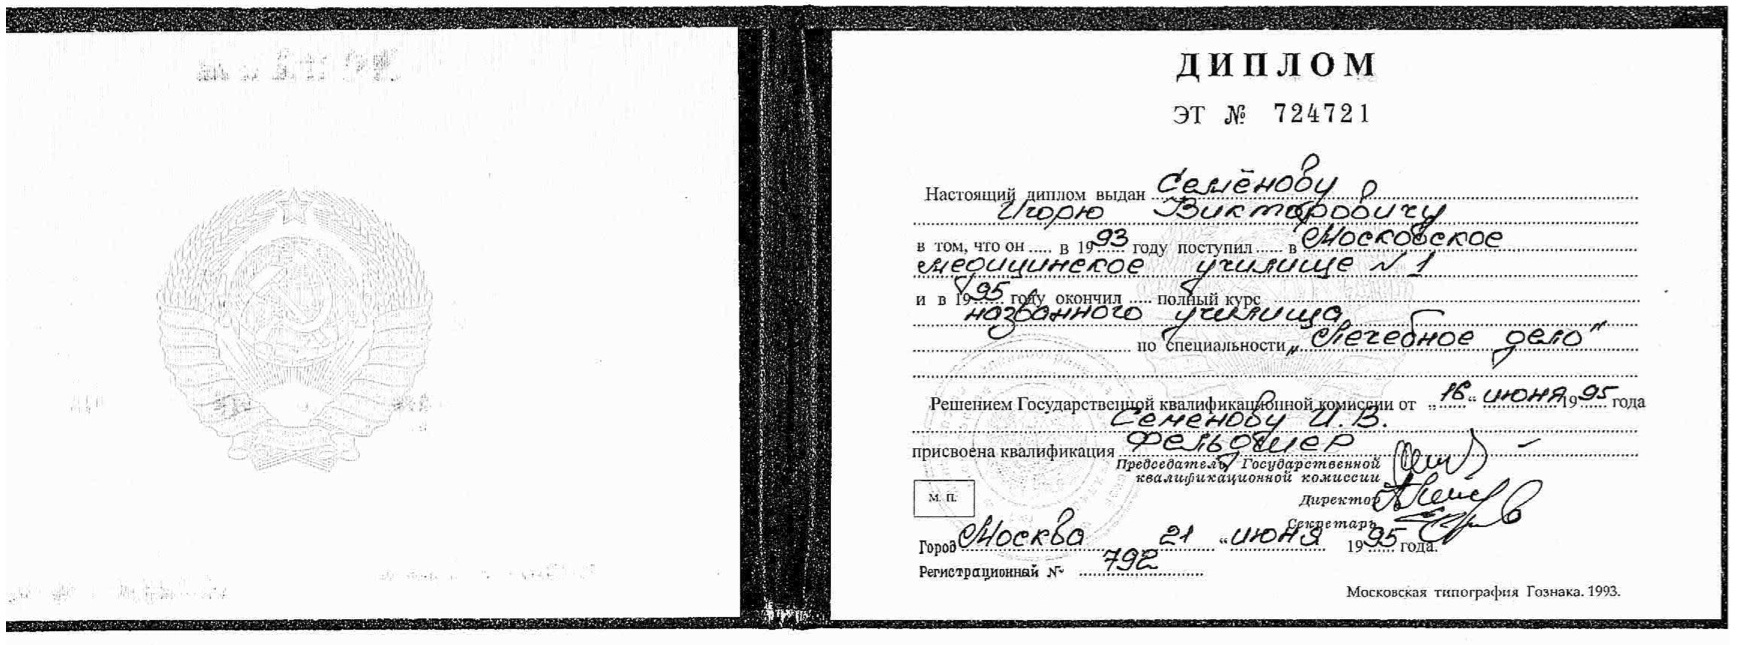 ДИПЛОМ
ЭТ № 724721
Настоящий диплом выдан Семёнову
Игорю Викторовичу
в том, что он ..... в 1993 году поступил ..... в Московское
медицинское училище N 1
и в 1995 году окончил ..... полный курс
названного училища
по специальности „Лечебное дело“
Решением Государственной квалификационной комиссии от „16“ июня 1995 года
Семенову И.В.
присвоена квалификация фельдшер
Председатель Государственной
квалификационной комиссии
М. П.
Директор
Секретарь
Город Москва 21 “ июня 1995 года.
Регистрационный № 792
Московская типография Гознака. 1993.